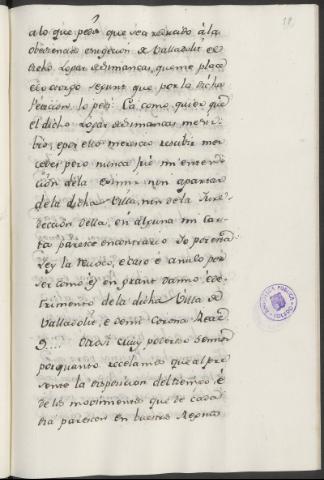 18
a lo que pedís que sea reducido á la
obediencia é sugecion de Valladolid el
dicho Lugar de Simancas, que me place
de lo otorgar segunt que por la dicha
Peticion lo pedis. Ca como quier que
el dicho Lugar de Simancas me sir-
bió, e por ello mereció recibir mer-
cedes pero nunca fué mi inten-
ción de la eximir nin apartar
de la dicha Villa, nin de la Jure-
dección della, é si alguna mi car-
ta parece en contrario Yo por esta
Ley la revoco, é caso é anulo por
ser como és en grant danno é de-
trimento de la dicha Villa de
Valladolid, e de mi Corona Real.
9.... Otrosi muy poderoso Sennor
por quanto recelamos que al pre-
sente la disposicion del tiempo é
de los movimientos que de cada
dia parescen en buestros Regnos
BIBLIOTECA PUBLICA
TOLEDO